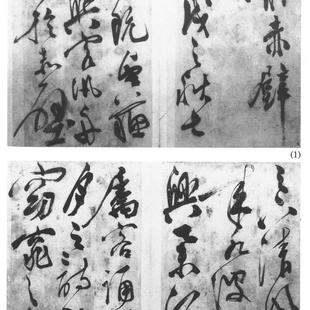 前赤壁
戌之秋七
既望蘇
與客泛舟
於赤壁
(1)
之下清風
來水波
興舉酒
屬客誦
月之詩
窈窕之